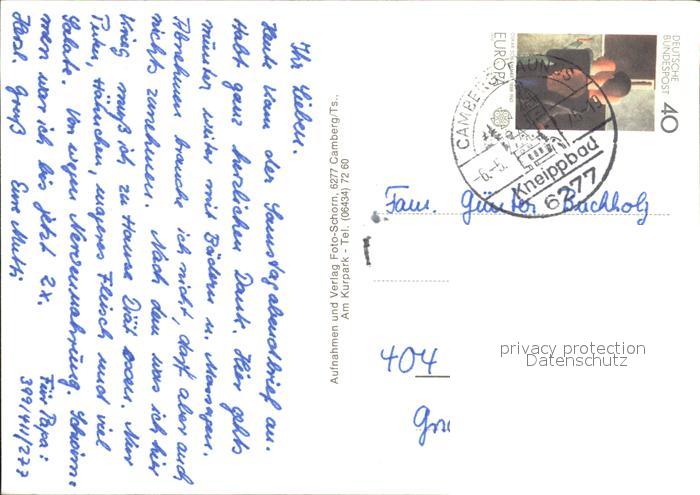 Ihr Lieben.
Heute kam der Samstagabendbrief an.
Habt ganz herzlichen Dank. Hier gehts
munter weiter mit Bädern u. Massagen.
Abnehmen brauche ich nicht, darf aber auch
nichts zunehmen. Nach dem was ich hier
krieg, muß ich zu Hause Diät essen. Nur
Puter, Hähnchen, mageres Fleisch und viel
Salate. Von wegen Nervennahrung. Schwim-
men war ich bis jetzt 2x.
Herzl. Gruß Eure Mutti
Für Papa:
399/411/277
Aufnahmen und Verlag Foto-Schorn, 6277 Camberg/Ts.,
Am Kurpark - Tel. (06434) 72 60
DEUTSCHE
BUNDESPOST
40
EUROPA
CAMBERG
Kneippbad
6277
Fam. Günter Buchholz
404
privacy protection
Datenschutz